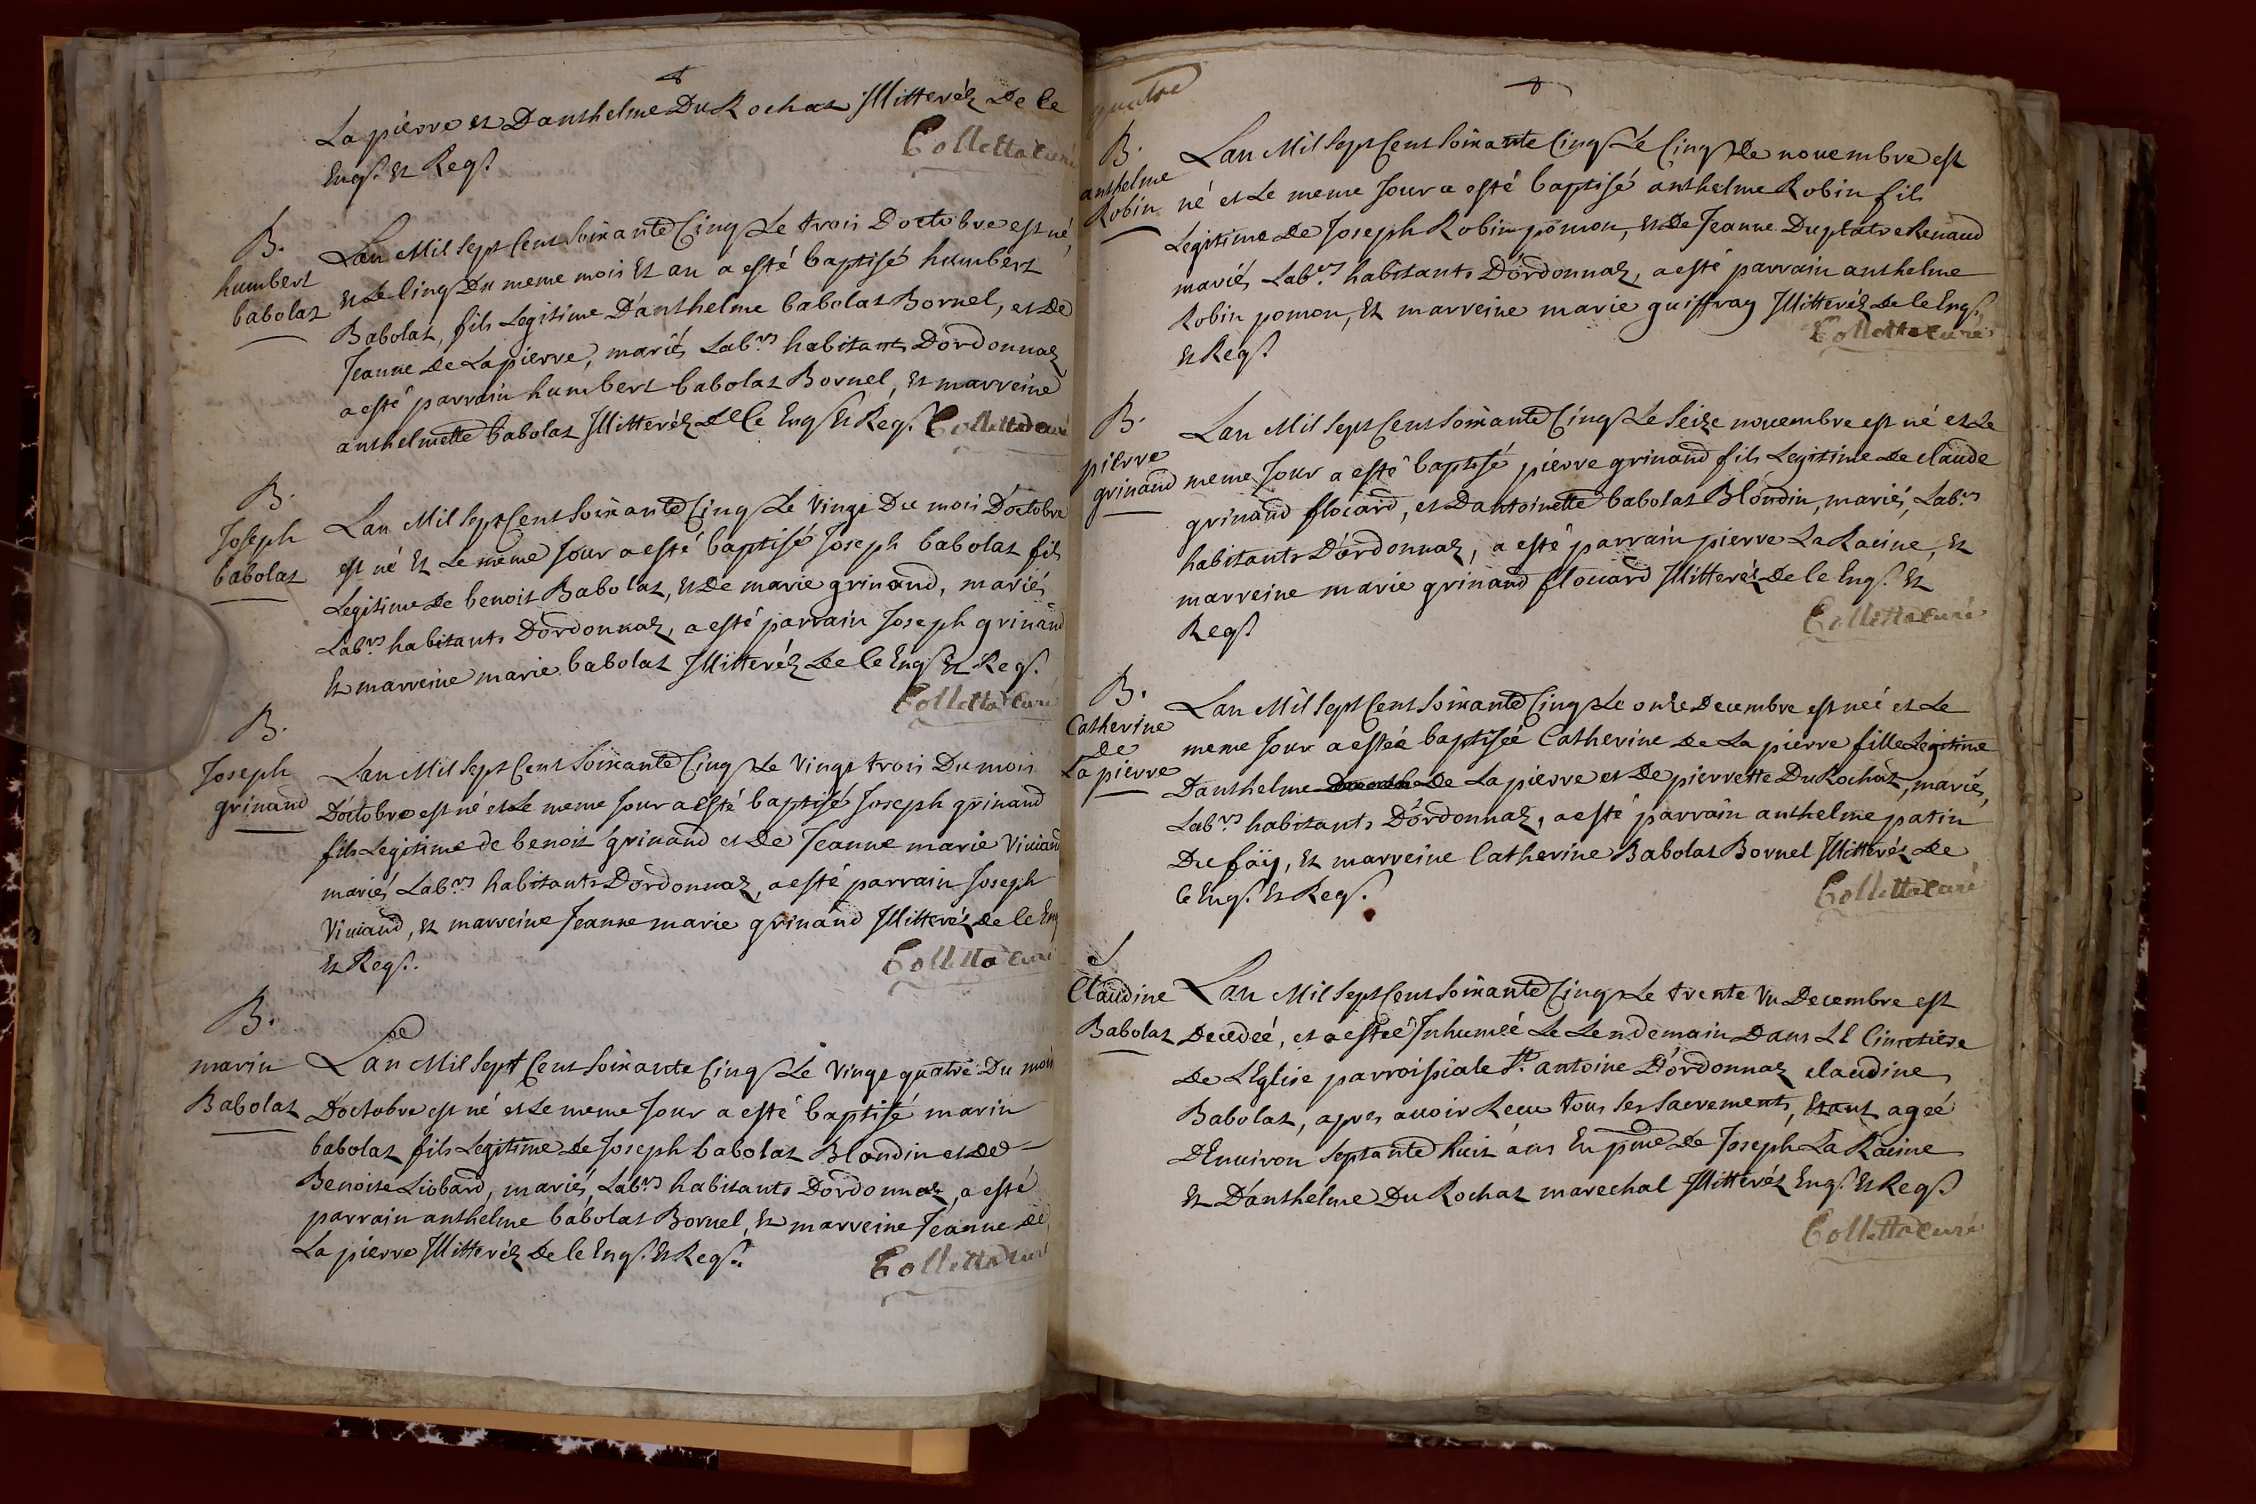 La pierre et Danthelme Du Rochat Illitteréz De ce
Enqs. et Reqs.
Colletta curé
B.
humbert
babolat
Lan Mil Sept Cent Soixante Cinq Le trois D'octobre est né,
et Le Cinq Du meme mois et an a esté baptisé humbert
Babolat, fils Legitime D'anthelme babolat Bornel, et De
Jeanne De Lapierre, mariés Labrs. habitants D'ordonnaz
a esté parrain humbert babolat Bornel, et marreine
anthelmette babolat Illitteréz De Ce Enqs et Réqs. Collettacuré
B.
Joseph
babolat
Lan Mil Sept Cent Soixante Cinq Le Vingt Du mois D'octobre
est né et Le meme Jour a esté baptisé Joseph babolat fils
Legitime De benoit Babolat, et De marie grinand, mariés
Labrs. habitants D'ordonnaz, a esté parrain Joseph grinand
et marreine marie babolat Illitteréz De Ce Enqs et Reqs.
Collettacuré
B.
Joseph
grinand
Lan Mil Sept Cent Soixante Cinq Le Vingt trois Du mois
D'octobre est né et Le meme Jour a esté baptisé Joseph grinand
fils Legitime de benoit grinand et De Jeanne marie Viviand
mariés Labrs. habitants D'ordonnaz, a esté parrain Joseph
Viviand, et marreine Jeanne marie grinand Illitteréz de Ce Enq
et Reqs.
Colletta curé
B.
marin
Babolat
Lan Mil Sept Cent Soixante Cinq Le Vingt quatre Du mois
D'octobre est né et Le meme Jour a esté baptisé marin
babolat fils Legitime De Joseph babolat Blondin et De
Benoite Liobard, mariés, Labrs. habitants D'ordonnaz, a esté
parrain anthelme babolat Bornel, et marreine Jeanne De
La pierre Illitteréz De Ce Enqs. et Reqs.
Collettacuré
quatre
B.
anthelme
Robin
Lan Mil Sept Cent Soixante Cinq Le Cinq De novembre est
né et Le meme Jour a esté baptisé anthelme Robin fils
Legitime De Joseph Robin pomon, et De Jeanne Duplatre Renaud
mariés Labrs. habitants D'ordonnaz, a esté parrain anthelme
Robin pomon, et marreine marie guiffray Illitteréz De Ce Enqs.
et Reqs.
Colletta curé
B.
pierre
grinand
Lan Mil Sept Cent Soixante Cinq Le Seize novembre est né et Le
meme Jour a esté baptisé pierre grinand fils Legitime De claude
grinand flocard, et D'antoinette babolat Blondin, mariés, Labrs.
habitants D'ordonnaz, a esté parrain pierre La Racine, et
marreine marie grinand flocard Illitteréz De Ce Enqs. et
Reqs.
Collettacuré
B.
Catherine
De
La pierre
Lan Mil Sept Cent Soixante Cinq Le onze Decembre est neé et Le
meme Jour a esteé baptiseé Catherine De La pierre fille Legitime
Danthelme De La pierre et De pierrette Du Rochat, mariés,
Labrs. habitants D'ordonnaz, a esté parrain anthelme patin
Du faÿ, et marreine Catherine Babolat Bornel Illitteréz De
Ce Enqs. et Reqs.
Collettacuré
S
Claudine
Babolat
Lan Mil Sept Cent Soixante Cinq Le trente Vn Decembre est
Decedeé, et a esteé Inhumeé Le Lendemain Dans Le Cimetiere
De L'Eglise parroissiale St. antoine D'ordonnaz claudine
Babolat, apres auoir Receu tous ses sacrements, Etant ageé
D'Enuiron Septante huit ans En pnce De Joseph La Racine
et D'anthelme Du Rochat marechal Illitteréz Enqs. et Reqs.
Collettacuré